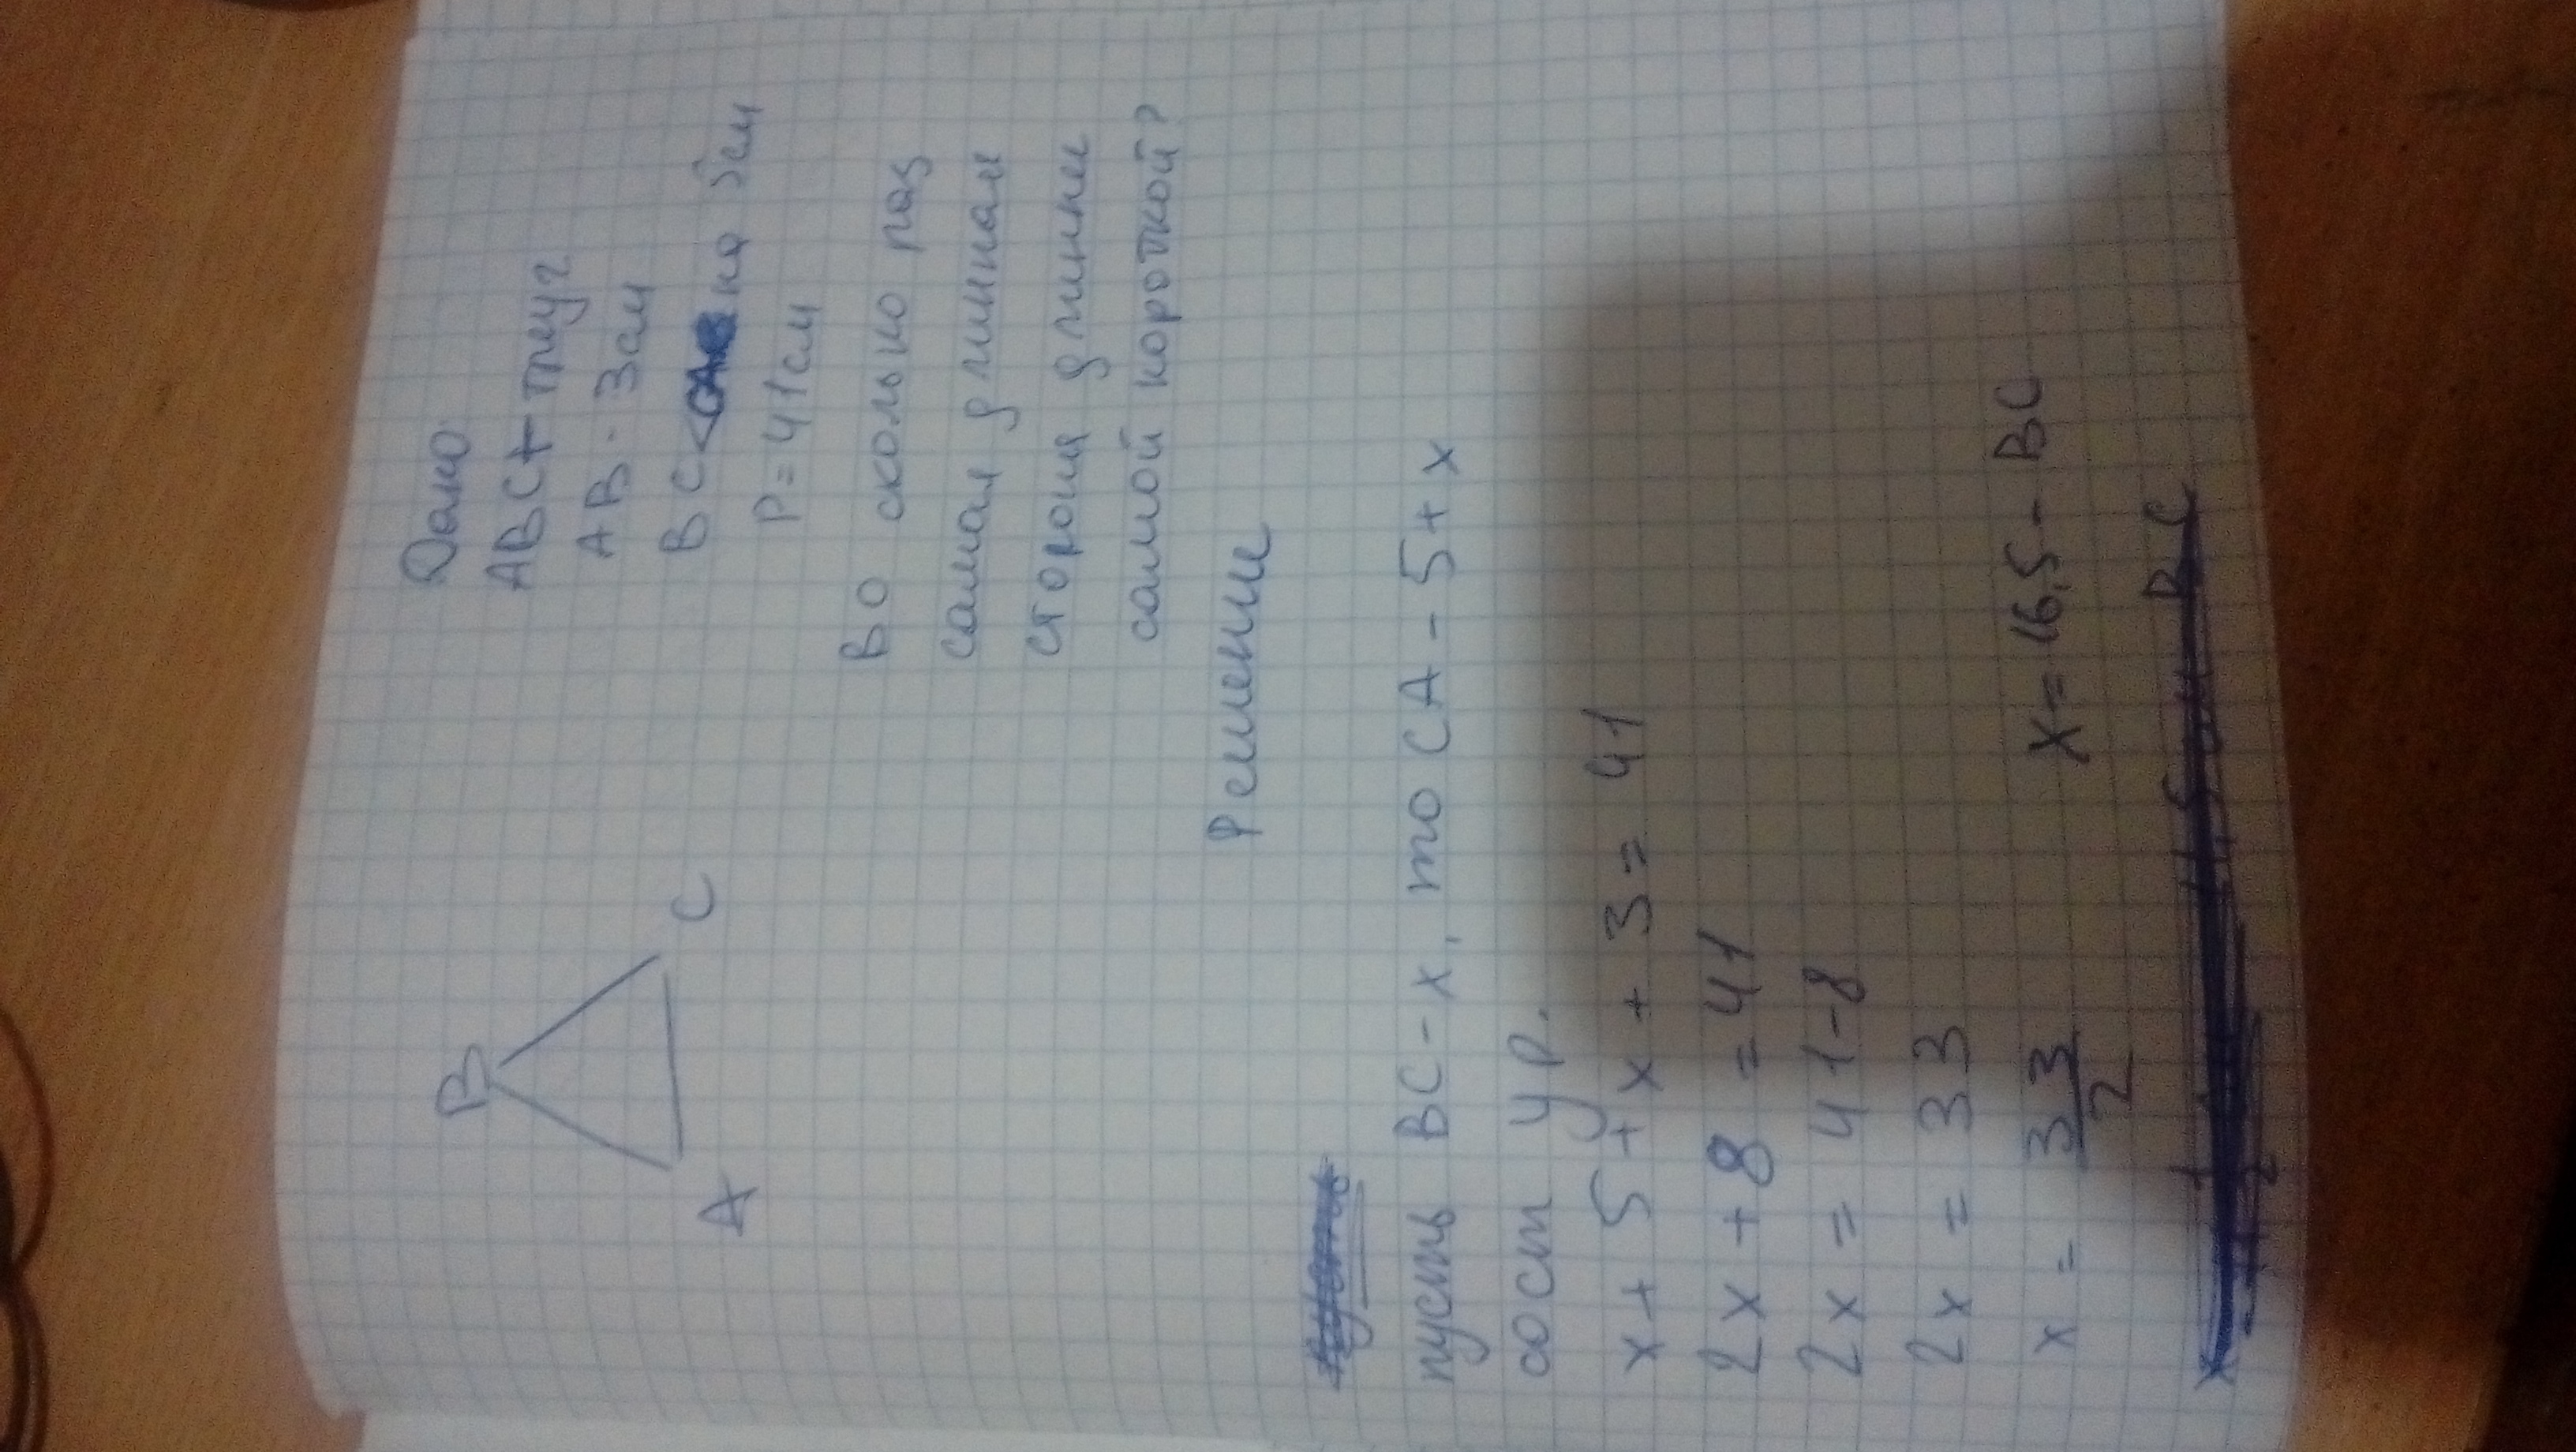 B
A
C
Дано:
ABC треуг.
AB - 3см
BC < CA на 5см
P = 41см
Во сколько раз
самая длинная
сторона длиннее
самой короткой?
Решение
пусть BC - x, то CA - 5 + x
сост ур.
x + 5 + x + 3 = 41
2x + 8 = 41
2x = 41 - 8
2x = 33
x = 33/2
x = 16,5 - BC